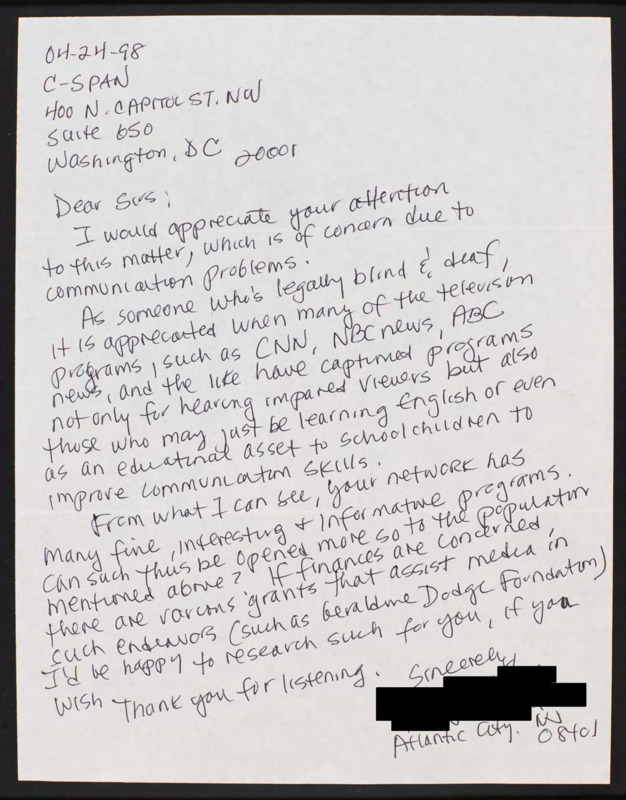 04-24-98
C-SPAN
400 N. CAPITOL ST. NW
Suite 650
Washington, DC 20001
Dear Sirs;
I would appreciate your attention
to this matter, which is of concern due to
communication problems.
As someone who's legally blind & deaf,
it is appreciated when many of the television
programs, such as CNN, NBC news, ABC
news, and the like have captioned programs
not only for hearing impared viewers but also
those who may just be learning English or even
as an educational asset to schoolchildren to
improve communication skills.
From what I can see, your network has
many fine, interesting & informative programs.
Can such thus be opened more so to the population
mentioned above? If finances are concerned,
there are various grants that assist media in
such endeavors (such as Geraldine Dodge Foundation)
I'd be happy to research such for you, if you
wish Thank you for listening.
Sincerely,
Atlantic City. NJ
08401